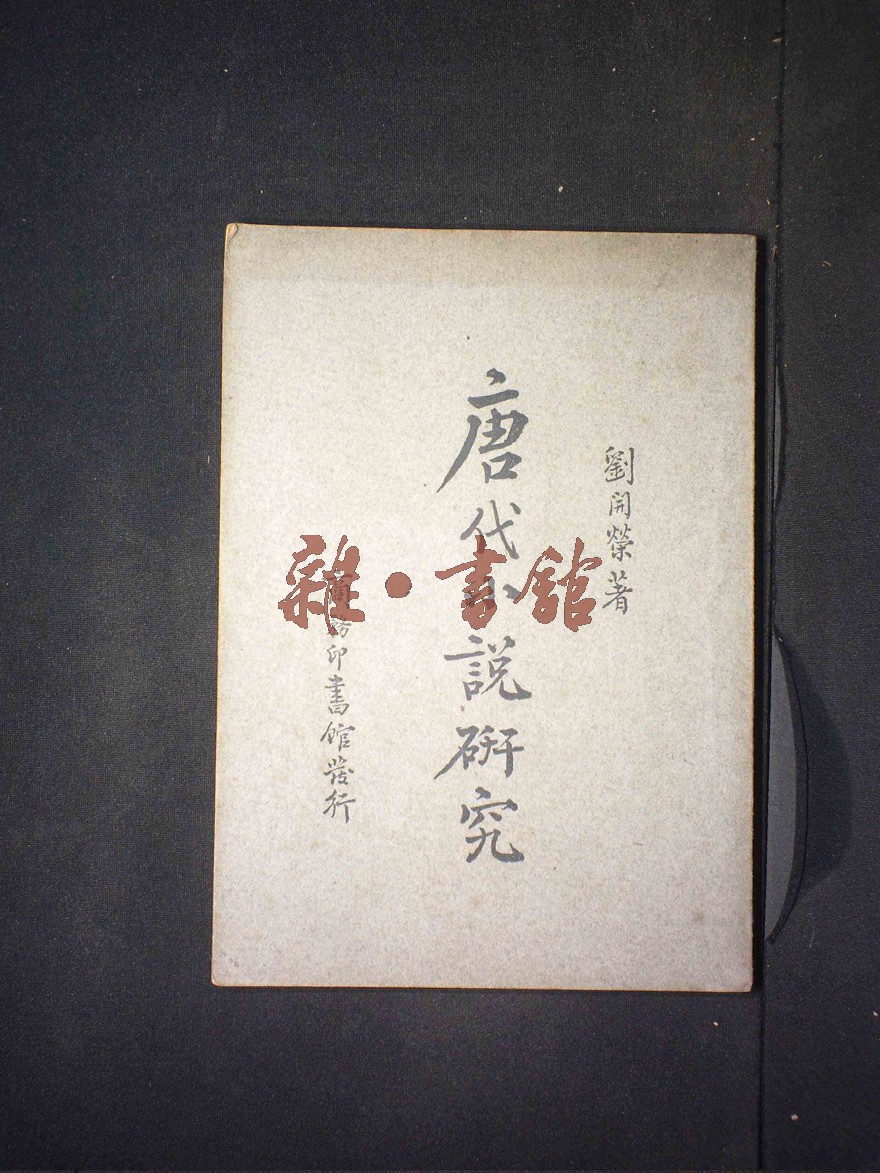 劉開榮著
唐代小說研究
商務印書館發行
雜·書館